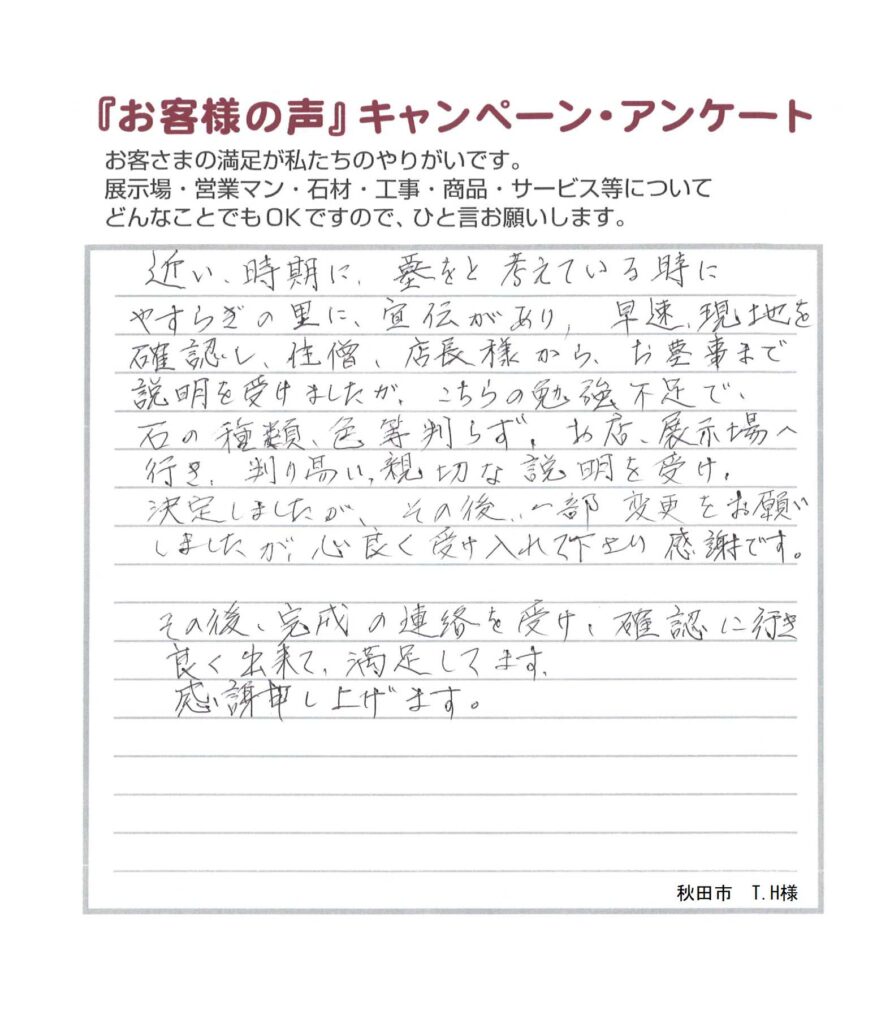 『お客様の声』キャンペーン・アンケート
お客さまの満足が私たちのやりがいです。
展示場・営業マン・石材・工事・商品・サービス等について
どんなことでもOKですので、ひと言お願いします。
近い、時期に、墓をと考えている時に
やすらぎの里に、宣伝があり、早速、現地を
確認し、住僧、店長様から、お墓事まで
説明を受けましたが、こちらの勉強不足で、
石の種類、色等判らず、お店、展示場へ
行き、判り易い、親切な説明を受け、
決定しましたが、その後、一部変更をお願い
しましたが、心良く受け入れて下さり感謝です。
その後、完成の連絡を受け、確認に行き
良く出来て、満足してます。
感謝申し上げます。
秋田市 T.H様